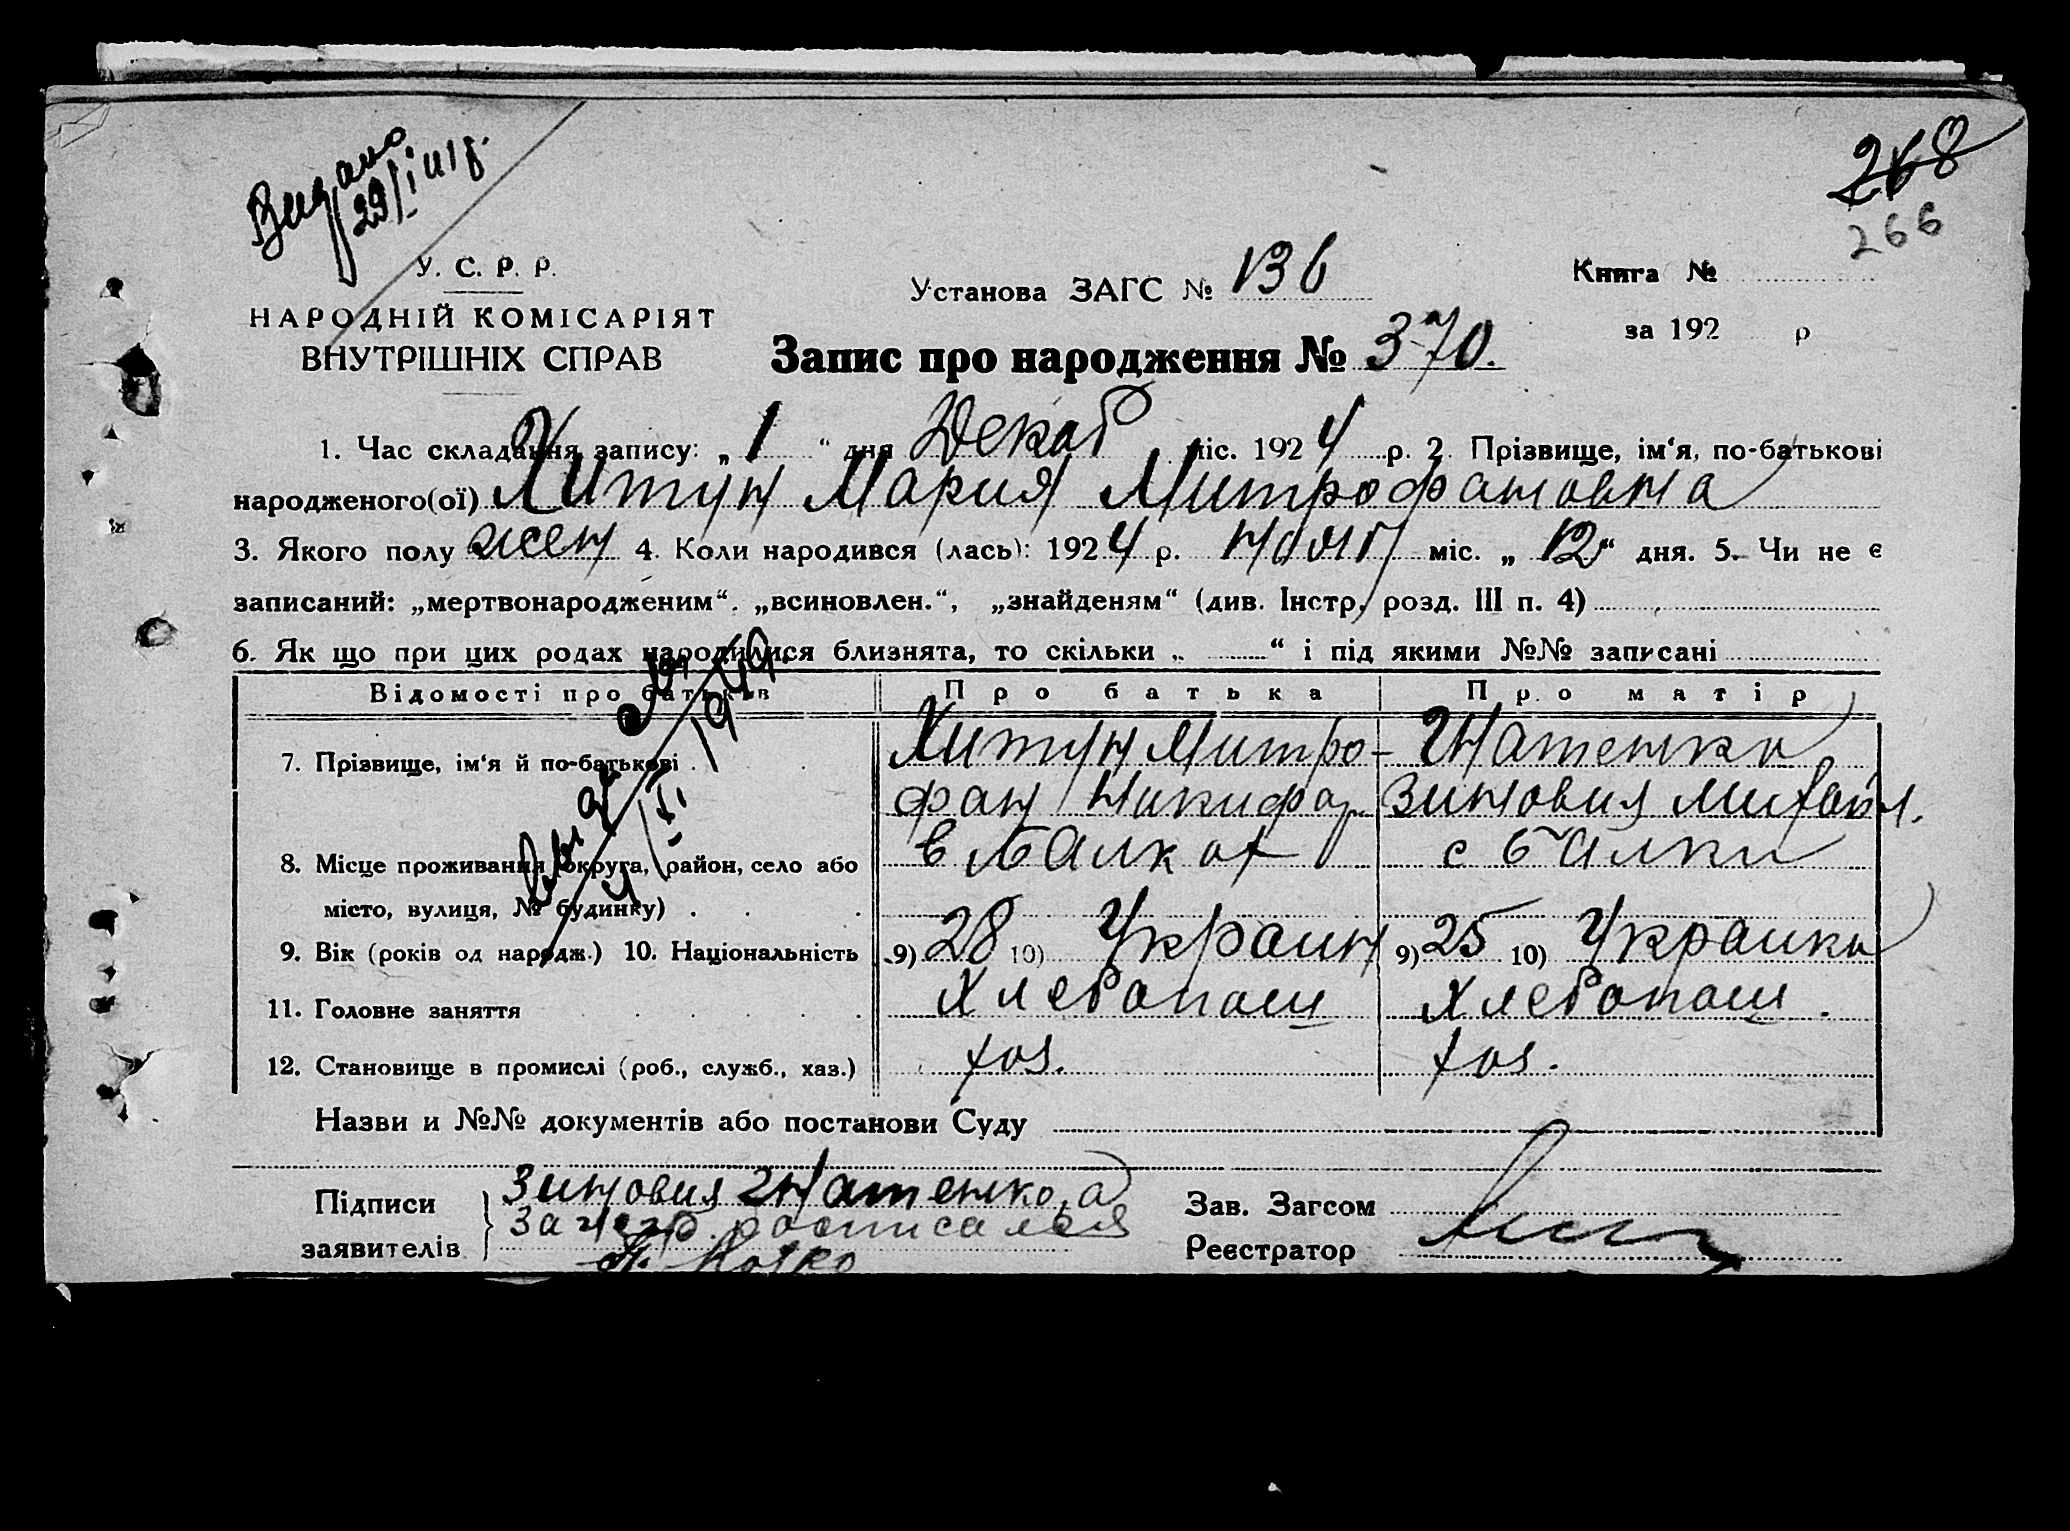 Видано 29/I 1941 г.
268
266
У. С. Р. Р.
НАРОДНІЙ КОМІСАРІЯТ
ВНУТРІШНІХ СПРАВ
Установа ЗАГС № 136
Книга №
за 192 р
Запис про народження № 370.
1. Час складання запису: „ 1 “ дня Декаб міс. 1924 р. 2. Прізвище, ім‘я, по-батькові
народженого(ої) Хитун Мария Митрофановна
3. Якого полу жен 4. Коли народився (лась): 1924 р. нояб міс. „ 12 “ дня. 5. Чи не є
записаний: „мертвонародженим“. „всиновлен.“, „знайденям“ (див. Інстр, розд. III п. 4)
6. Як що при цих родах народилися близнята, то скільки „ “ і під якими №№ записані
Відомості про батьків Про батька Про матір
7. Прізвище, ім‘я й по-батькові Хитун Митро- Гнатенко
фан Никифор Зиновия Михайл.
8. Місце проживання (округа, район, село або в Балках с Балки
місто, вулиця, № будинку)
9. Вік (років од народж.) 10. Національність 9) 28 10) Украин 9) 25 10) Украинка
11. Головне заняття Хлебопаш Хлебопаш.
12. Становище в промислі (роб., служб., хаз.) хоз. хоз.
Назви и №№ документів або постанови Суду
Підписи заявителів Зиновия Гнатенкова
за расписался
Зав. Загсом
Реєстратор